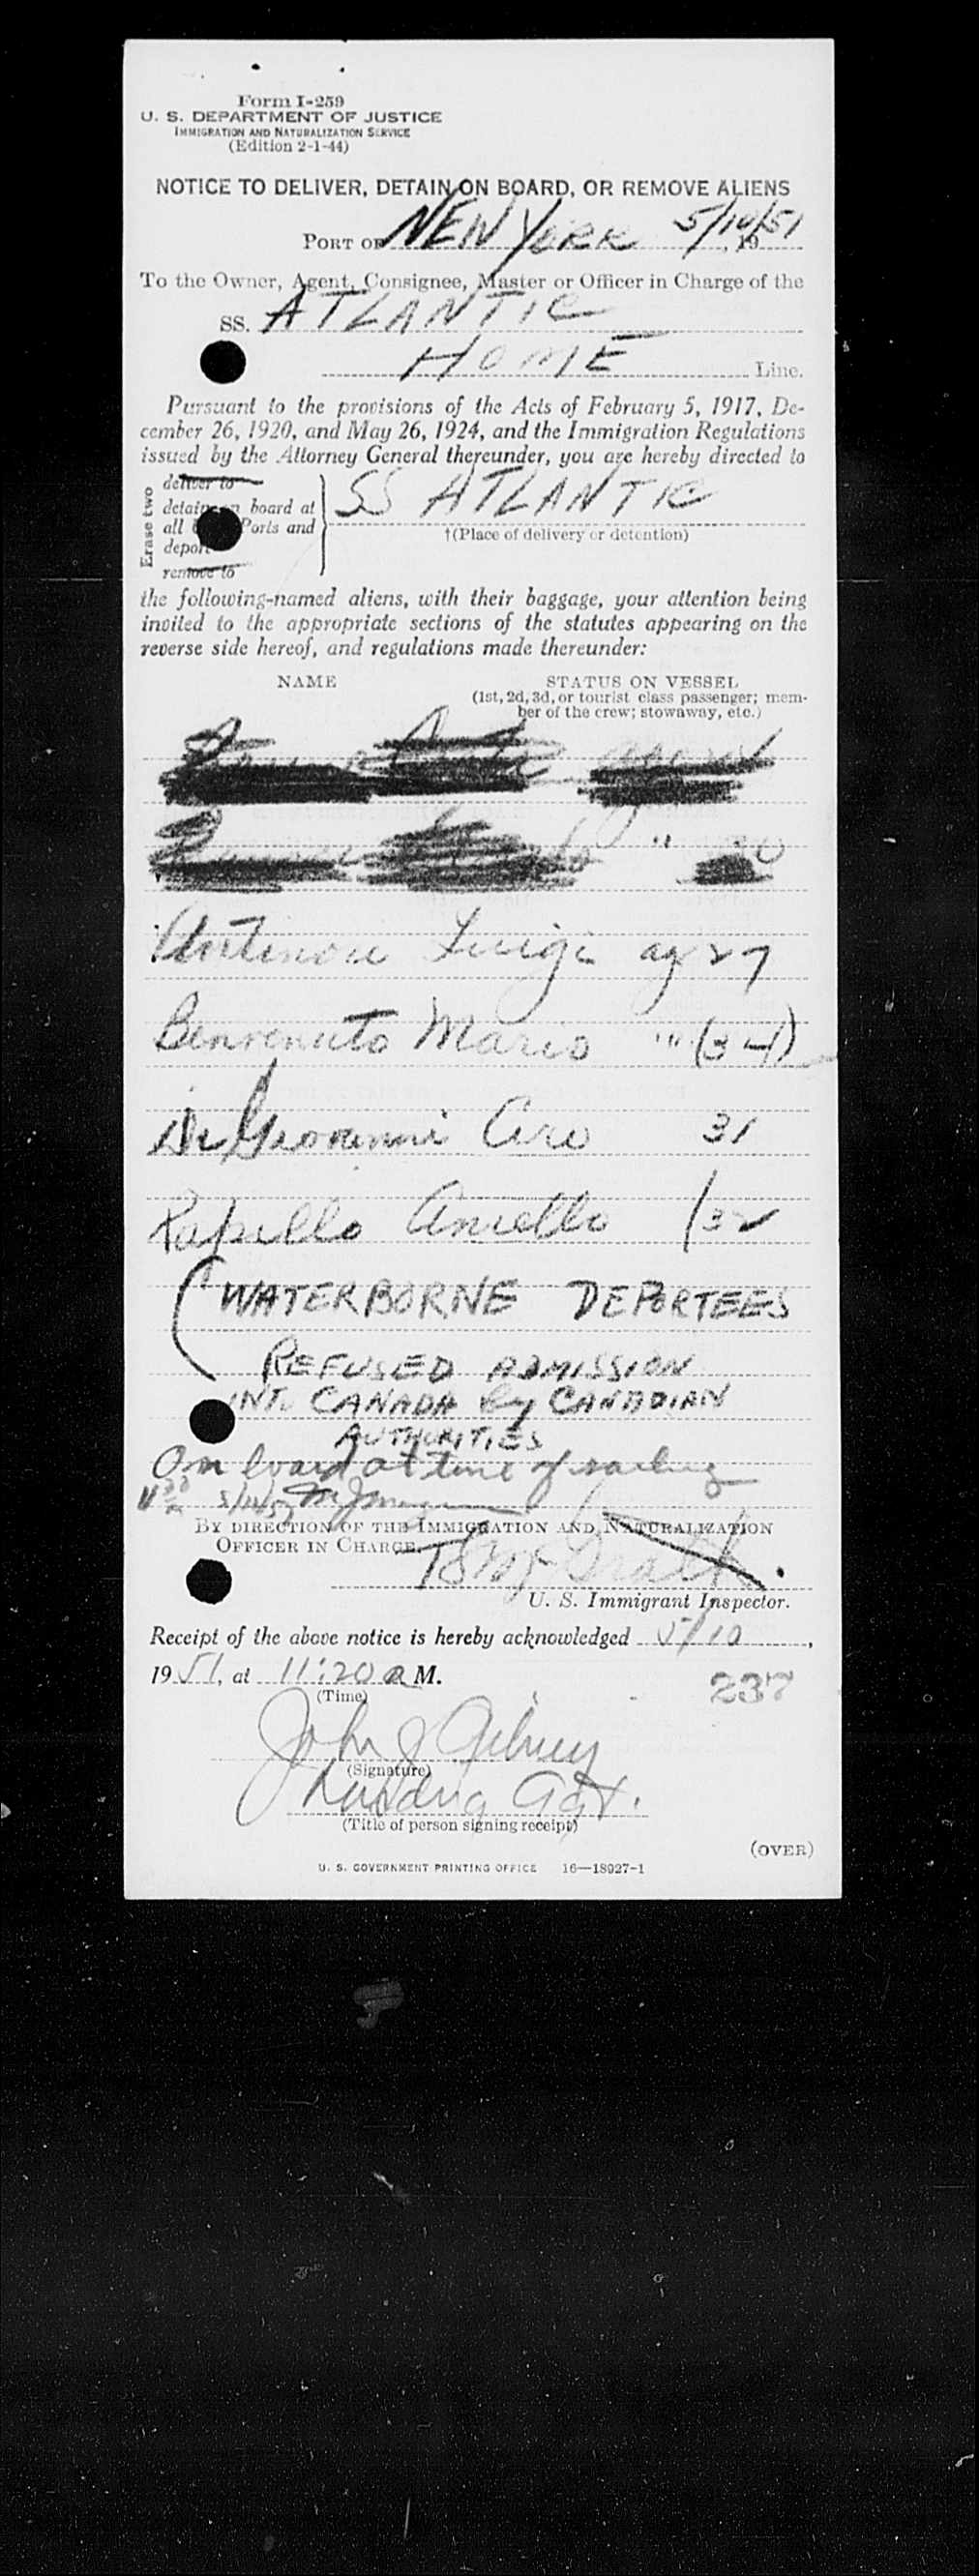 Form I-259
U. S. DEPARTMENT OF JUSTICE
IMMIGRATION AND NATURALIZATION SERVICE
(Edition 2-1-44)
NOTICE TO DELIVER, DETAIN ON BOARD, OR REMOVE ALIENS
PORT OF NEW YORK 5/10/51, 19
To the Owner, Agent, Consignee, Master or Officer in Charge of the
SS. ATLANTIC
HOME Line.
Pursuant to the provisions of the Acts of February 5, 1917, De-
cember 26, 1920, and May 26, 1924, and the Immigration Regulations
issued by the Attorney General thereunder, you are hereby directed to
Erase two
deliver to
detain on board at
all Ports and
deport
remove to
SS ATLANTIC
†(Place of delivery or detention)
the following-named aliens, with their baggage, your attention being
invited to the appropriate sections of the statutes appearing on the
reverse side hereof, and regulations made thereunder:
NAME STATUS ON VESSEL
(1st, 2d, 3d, or tourist class passenger; mem-
ber of the crew; stowaway, etc.)
Antinori Luigi age 27
Benvenuto Mario " (34)
Di Giovanni Ciro 31
Papillo Aniello 32
WATERBORNE DEPORTEES
REFUSED ADMISSION
INTO CANADA By CANADIAN
AUTHORITIES
On board at time of sailing
5/11/51
BY DIRECTION OF THE IMMIGRATION AND NATURALIZATION
OFFICER IN CHARGE.
U. S. Immigrant Inspector.
Receipt of the above notice is hereby acknowledged 5/10,
1951, at 11:20 a M.
(Time)
237
John J Gilney
(Signature)
Landing Agt.
(Title of person signing receipt)
(OVER)
U. S. GOVERNMENT PRINTING OFFICE 16—18927-1